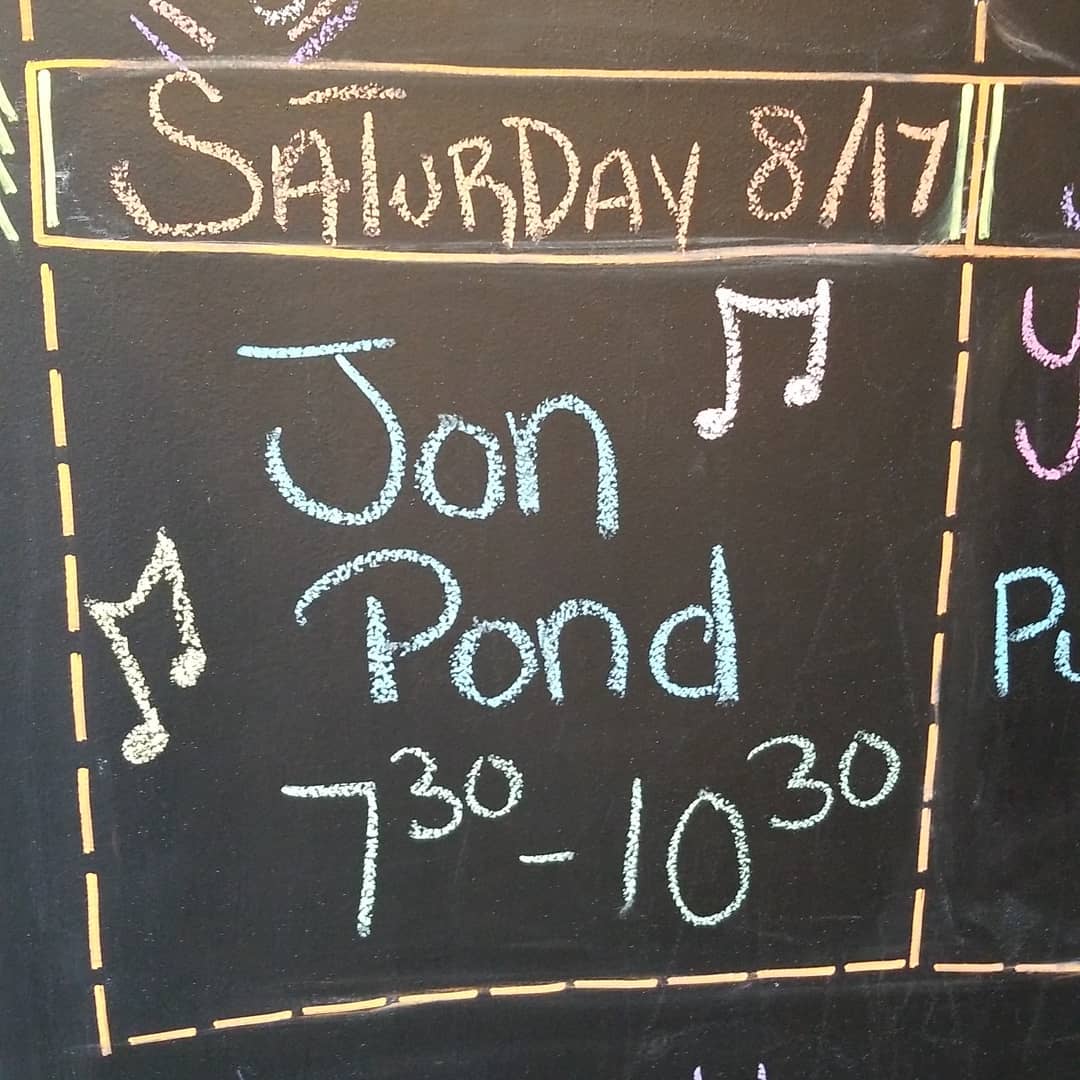 SATURDAY 8/17
Jon
Pond
7³⁰ - 10³⁰